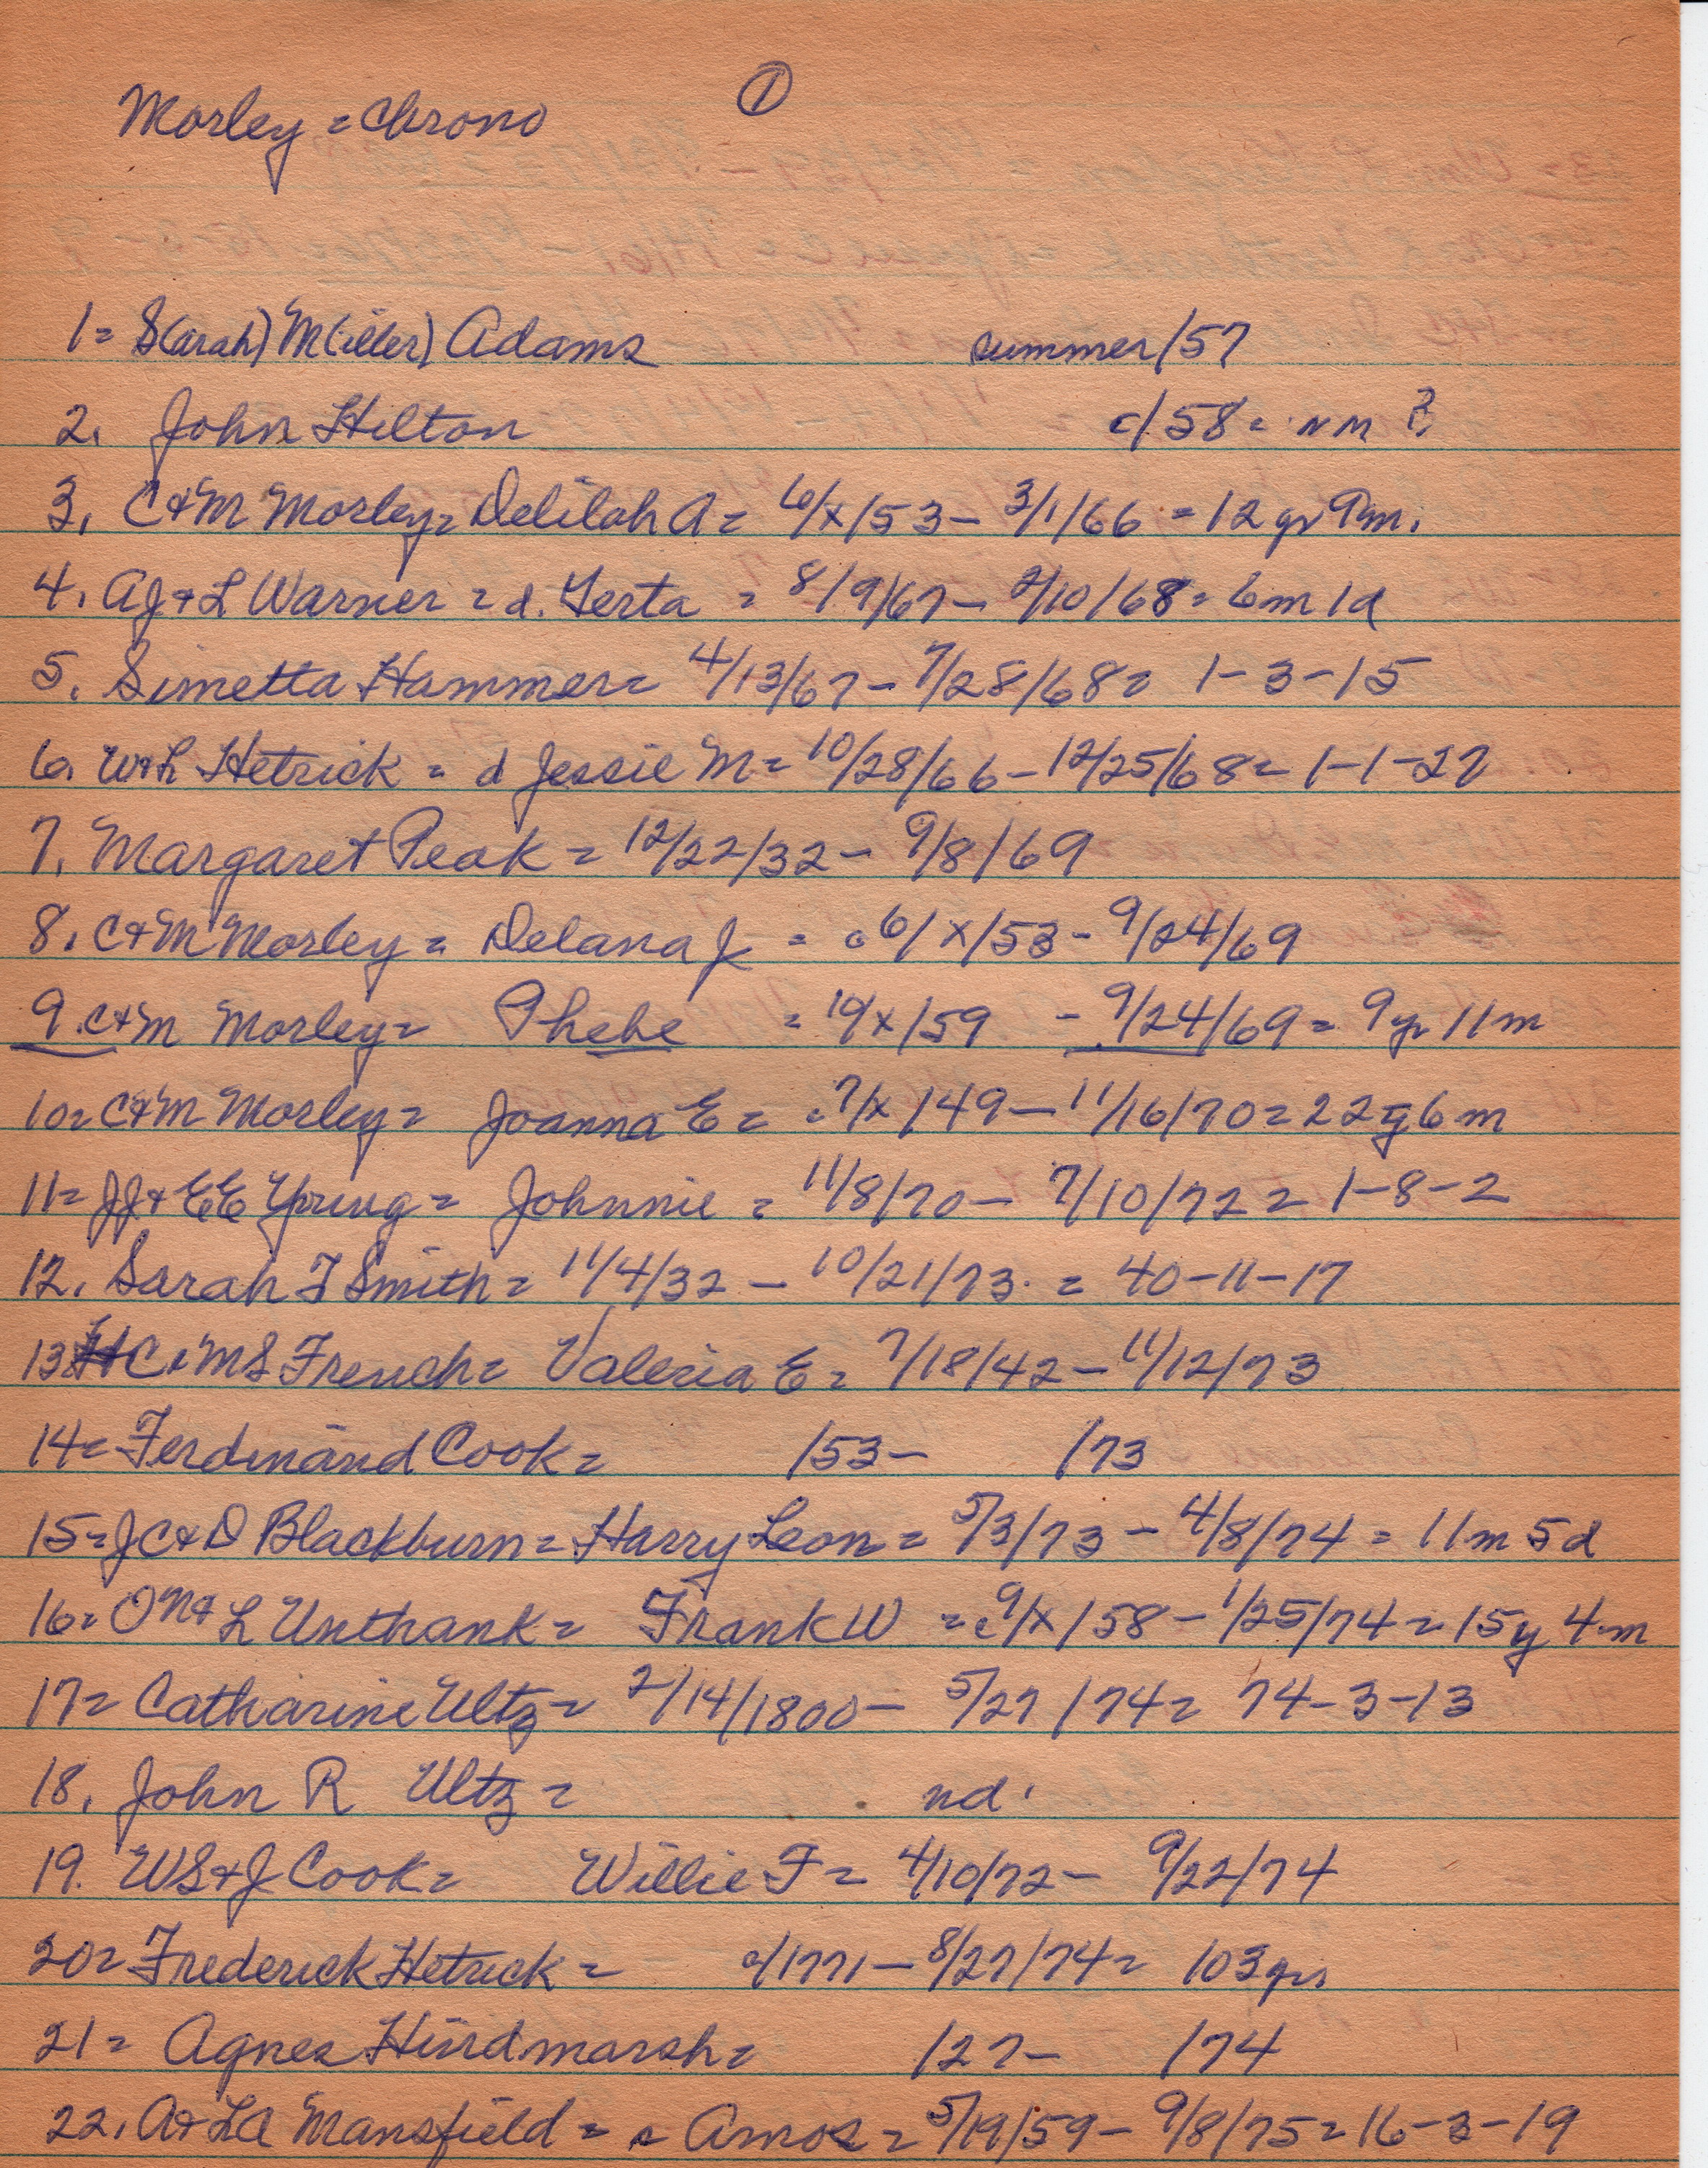 Morley = Chrono ①
1= S(arah) M(iller) Adams summer/57
2. John Hilton c/58 = NM ?
3. C+M Morley = Delilah A = 6/x/53 - 3/1/66 = 12 yr 9m.
4. AJ+L Warner = d. Gerta = 8/9/67 - 2/10/68 = 6m 1d
5. Simetta Hammer = 4/13/67 - 7/28/68 = 1-3-15
6. W+L Hetrick = d Jessie M = 10/28/66 - 12/25/68 = 1-1-27
7. Margaret Peak = 12/22/32 - 9/8/69
8. C+M Morley = Delana J = c 6/x/53 - 9/24/69
9. C+M Morley = Phebe = 10/x/59 - 9/24/69 = 9 yr 11m
10= C+M Morley = Joanna E = c 7/x/49 - 11/16/70 = 22y 6m
11= JJ+EE Young = Johnnie = 11/8/70 - 7/10/72 = 1-8-2
12. Sarah F Smith = 11/4/32 - 10/21/73. = 40-11-17
13. C+MS French = Valeria E = 7/18/42 - 11/12/73
14= Ferdinand Cook = /53 - /73
15= JC+D Blackburn = Harry Leon = 5/3/73 - 4/8/74 = 11m 5d
16= ON+L Unthank = Frank W = c 9/x/58 - 1/25/74 = 15y 4m
17= Catharine Ultz = 2/14/1800 - 5/27/74 = 74-3-13
18. John R Ultz = nd.
19. WS+J Cook = Willie F = 4/10/72 - 9/22/74
20= Frederick Hetrick = c/1771 - 8/27/74 = 103 yrs
21= Agnes Hindmarsh = /27 - /74
22. A+LA Mansfield = s Amos = 5/19/59 - 9/8/75 = 16-3-19